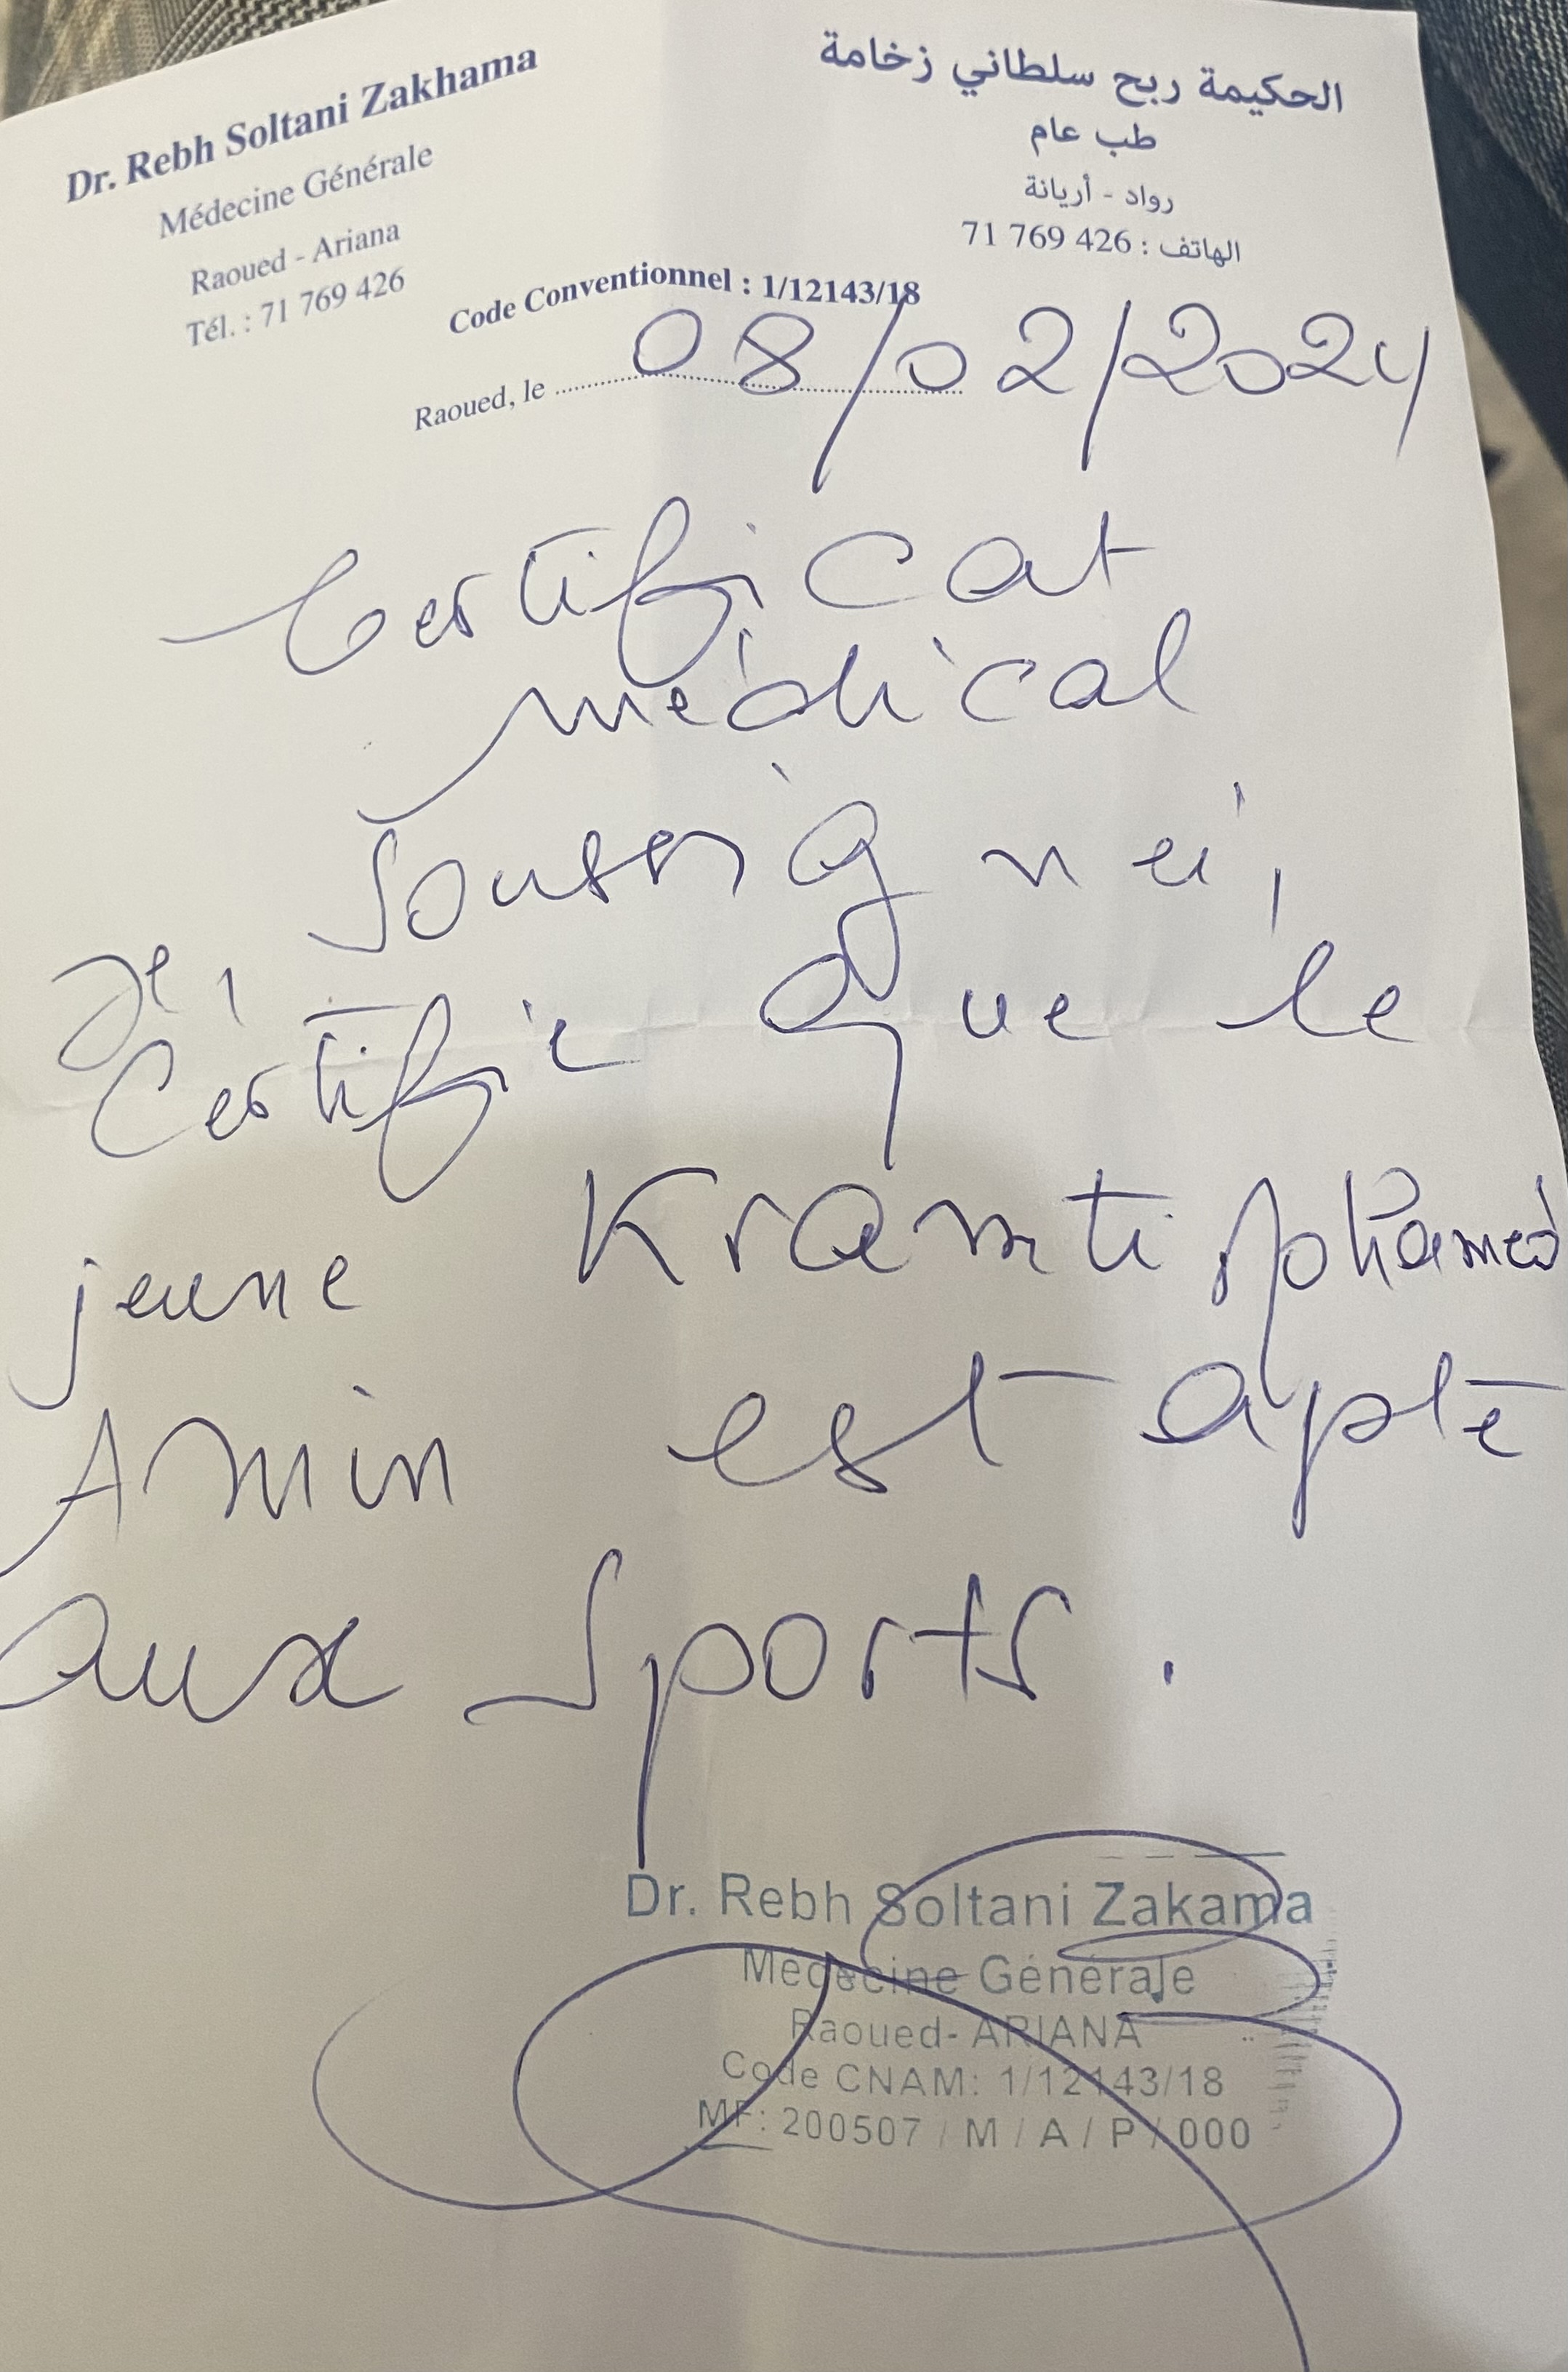 Dr. Rebh Soltani Zakhama
Médecine Générale
Raoued - Ariana
Tél. : 71 769 426
الحكيمة ربح سلطاني زخامة
طب عام
رواد - أريانة
الهاتف : 426 769 71
Code Conventionnel : 1/12143/18
Raoued, le 08/02/2024
Certificat
médical
Je, soussigné,
Certifie que le
jeune Kramti Mohamed
Amin est apte
aux sports.
Dr. Rebh Soltani Zakama
Médecine Générale
Raoued- ARIANA
Code CNAM: 1/12143/18
MF: 200507 / M / A / P / 000